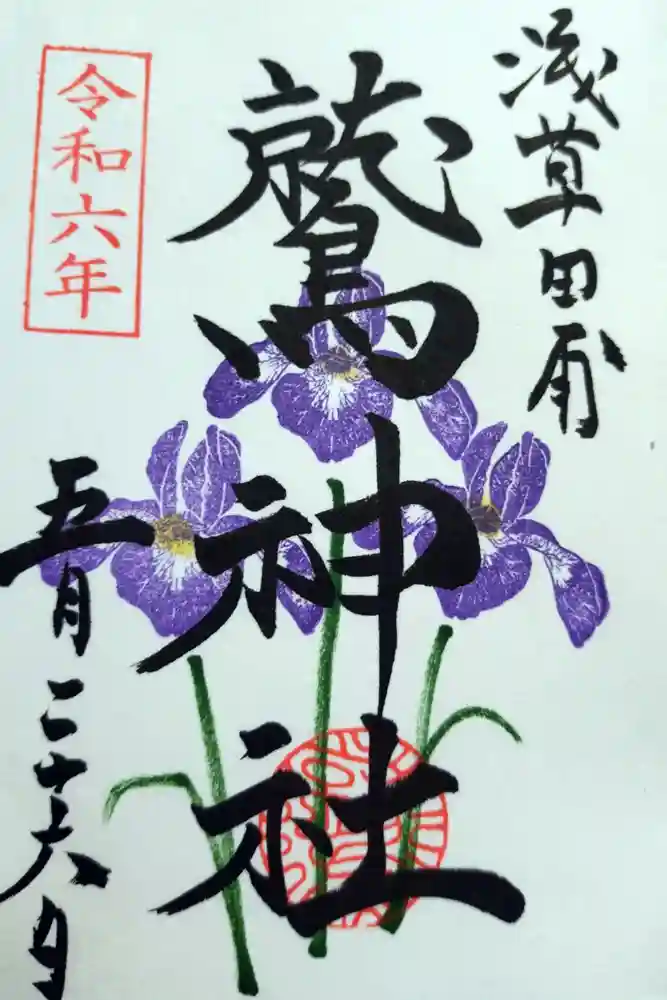 浅草田甫
鷲神社
令和六年
五月二十六日